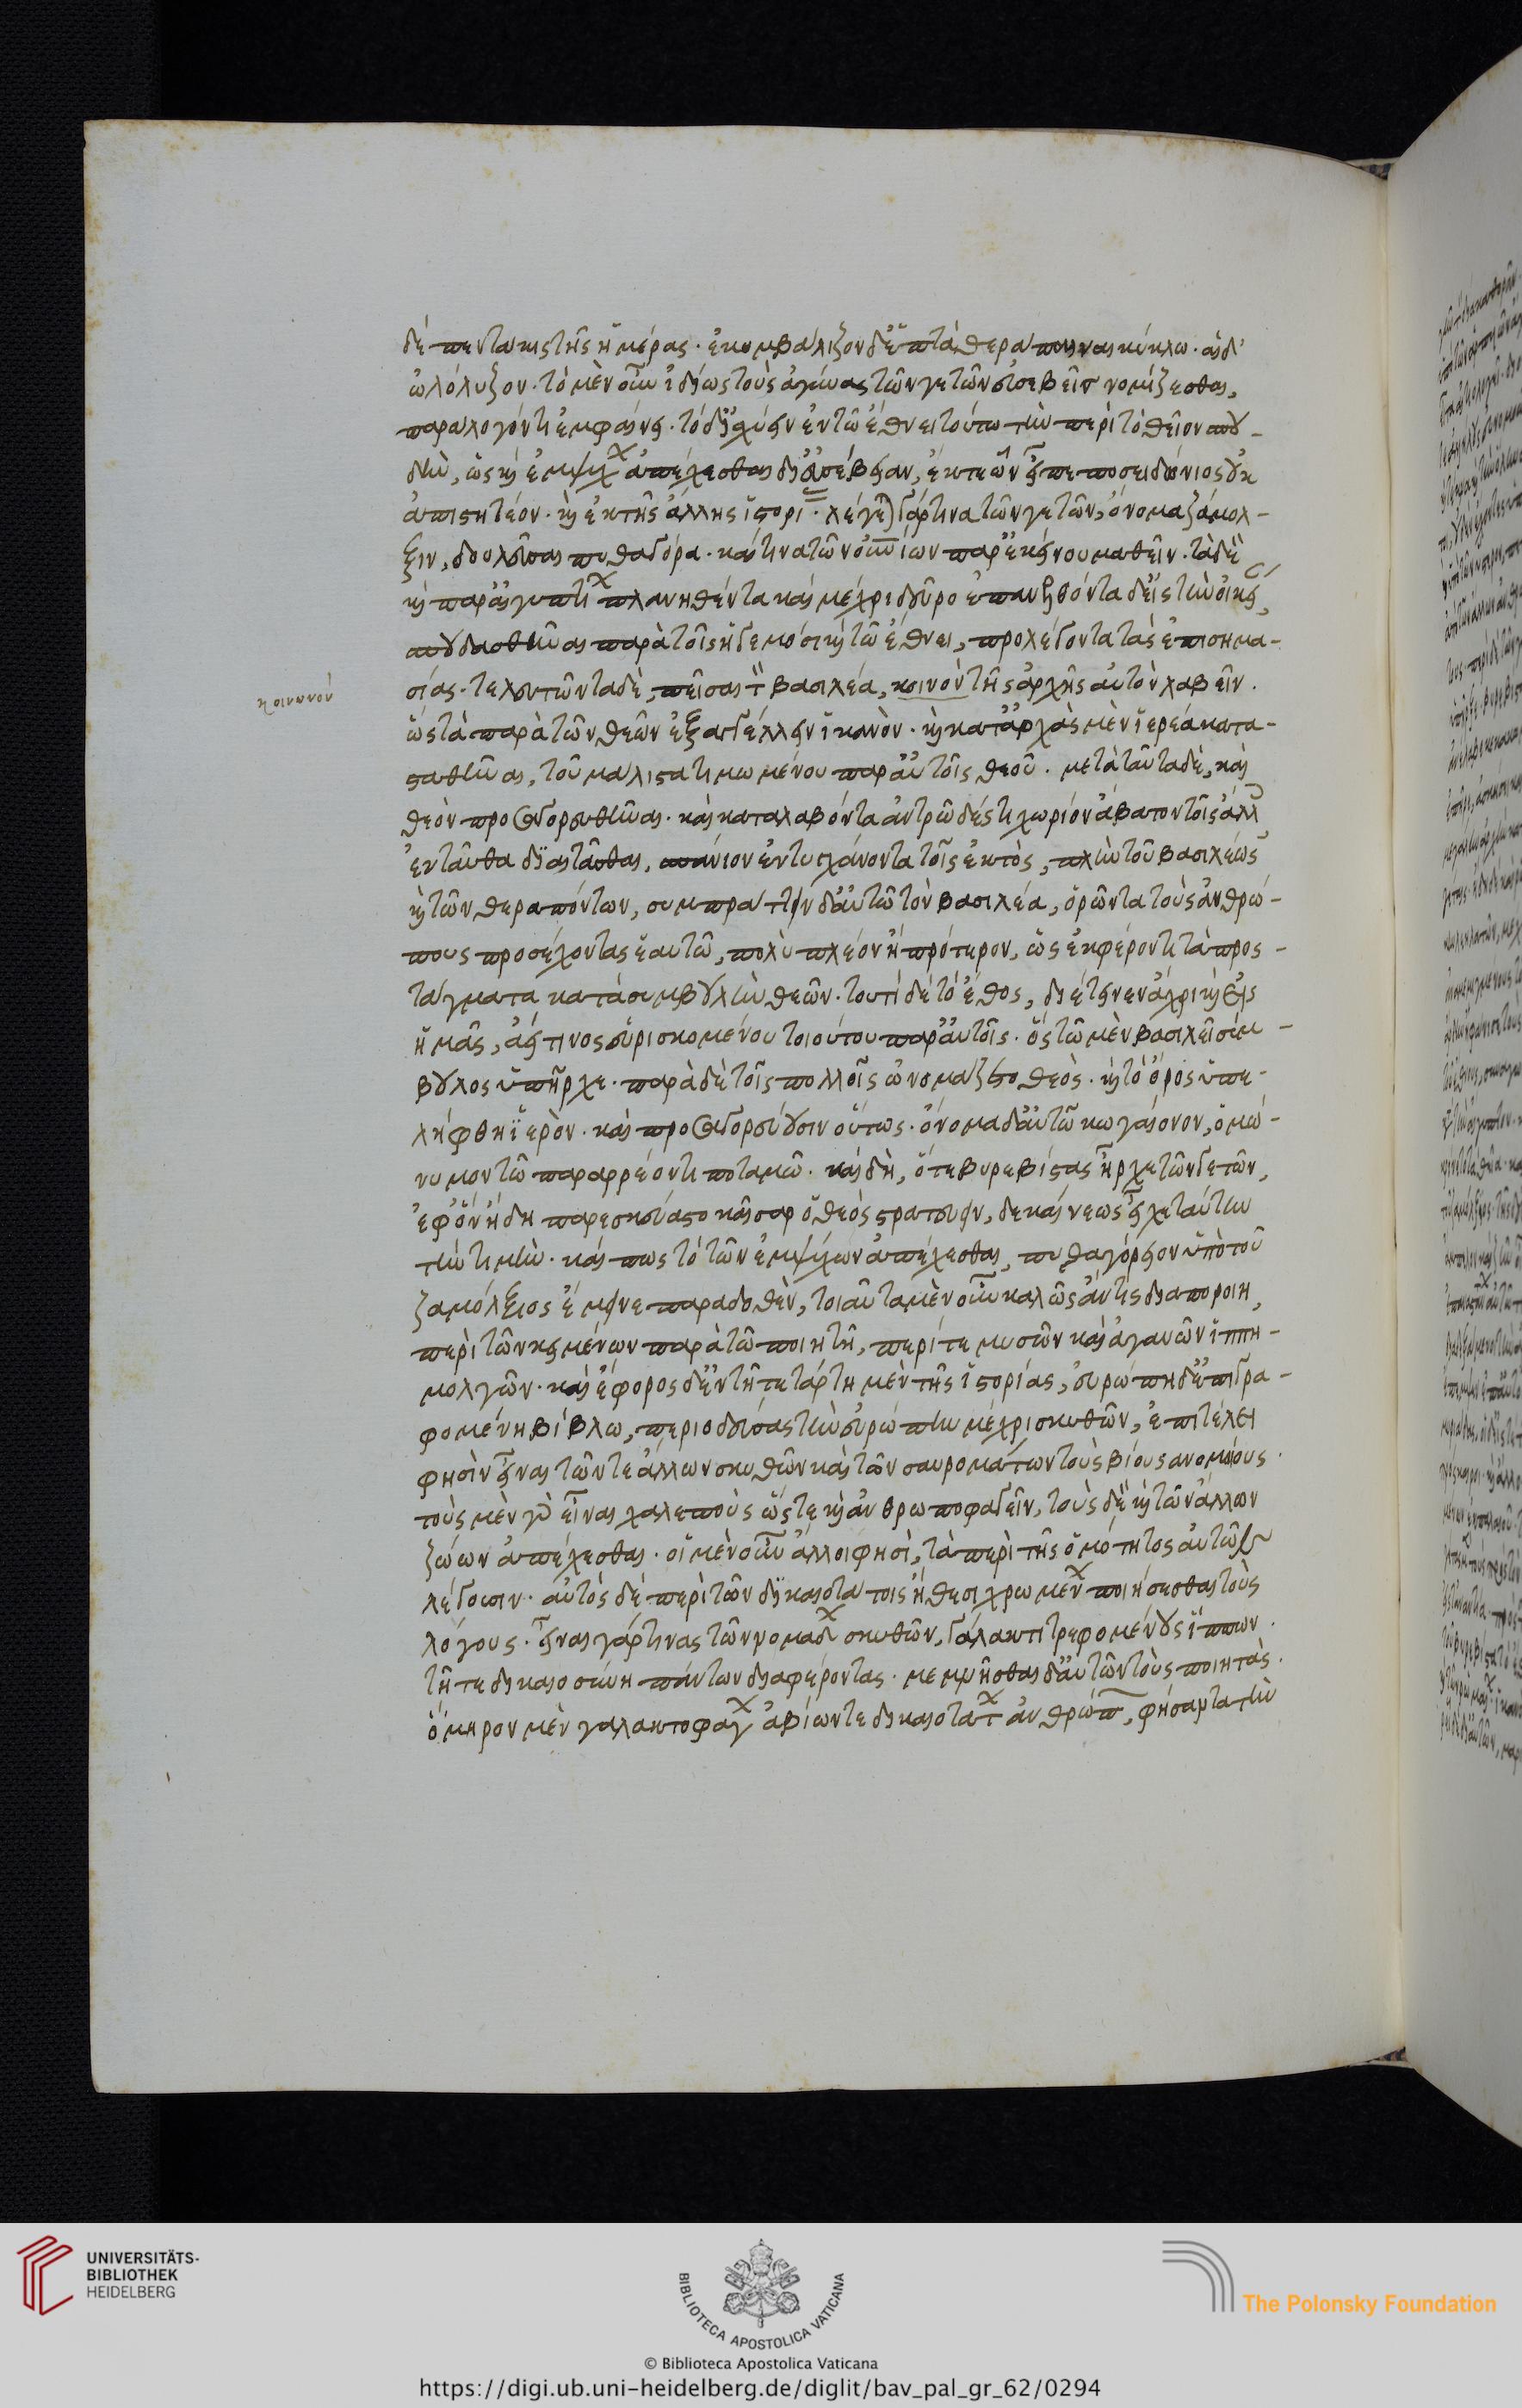 δὲ πεντάκις τῆς ἡμέρας· ἐκυμβάλιζον δὲ ἑπτὰ θεράπαιναι κύκλω· αἱ δ'
ὠλόλυζον· τὸ μὲν οὖν ἰδίως τοὺς ἀγύνας τῶν γετῶν εὐσεβεῖς νομίζεσθαι,
παράλογόν τι ἐμφαίνει· τὸ δ' ἰσχύειν ἐν τῶ ἔθνει τούτω τὴν περὶ τὸ θεῖον σπου-
δὴν, ὡς καὶ ἐμψύχ ἀπέχεσθαι δι' εὐσέβειαν, ἔκ τε ὧν εἶπε ποσειδώνιος οὐκ
ἀπιστητέον· καὶ ἐκ τῆς ἄλλης ἱστορί· λέγεται γάρ τινα τῶν γετῶν, ὄνομα ζάμολ-
ξιν, δουλεῦσαι πυθαγόρα· καί τινα τῶν οὐρανίων παρ' ἐκείνου μαθεῖν· τὰ δὲ
καὶ παρ' αἰγυπτί πλανηθέντα καὶ μέχρι δεῦρο ἐπανελθόντα δ' εἰς τὴν οἰκεί,
σπουδασθῆναι παρὰ τοῖς ἡγεμόσι καὶ τῶ ἔθνει, προλέγοντα τὰς ἐπισημα-
σίας· τελευτῶντα δὲ, πεῖσαι τὸν βασιλέα, κοινὸν τῆς ἀρχῆς αὐτὸν λαβεῖν.
κοινωνόν
ὡς τὰ παρὰ τῶν θεῶν ἐξαγγέλλειν ἱκανὸν· καὶ κατ' ἀρχὰς μὲν ἱερέα κατα-
σταθῆναι, τοῦ μάλιστα τιμωμένου παρ' αὐτοῖς θεοῦ· μετὰ ταῦτα δὲ, καὶ
θεὸν προσαγορευθῆναι· καὶ καταλαβόντα ἀντρῶδές τι χωρίον ἄβατον τοῖς ἄλλ
ἐνταῦθα διαιτᾶσθαι, σπάνιον ἐντυγχάνοντα τοῖς ἐκτὸς, πλὴν τοῦ βασιλέως
καὶ τῶν θεραπόντων, συμπράττειν δ' αὐτῶ τὸν βασιλέα, ὁρῶντα τοὺς ἀνθρώ-
πους προσέχοντας ἑαυτῶ, πολὺ πλέον ἢ πρότερον, ὡς ἐκφέροντι τὰ προς-
τάγματα κατὰ συμβουλὴν θεῶν· τουτὶ δὲ τὸ ἔθος, διέτεινεν ἄχρι καὶ εἰς
ἡμᾶς, ἀεί τινος εὑρισκομένου τοιούτου παρ' αὐτοῖς· ὃς τῶ μὲν βασιλεῖ σύμ-
βουλος ὑπῆρχε· παρὰ δὲ τοῖς πολλοῖς ὠνομάζετο θεὸς· καὶ τὸ ὄρος ὑπε-
λήφθη ἱερὸν· καὶ προσαγορεύουσιν οὕτως· ὄνομα δ' αὐτῶ κωγαίονον, ὁμώ-
νυμον τῶ παραρρέοντι ποταμῶ· καὶ δὴ, ὅτε βυρεβίστας ἦρχε τῶν γετῶν,
ἐφ' ὃν ἤδη παρεσκευάσατο καῖσαρ ὁ θεὸς στρατεύειν, δεκαίνεως εἶχε ταύτην
τὴν τιμὴν· καί πως τὸ τῶν ἐμψύχων ἀπέχεσθαι, πυθαγόρειον ὑπὸ τοῦ
ζαμόλξιος ἔμεινε παραδοθὲν, τοιαῦτα μὲν οὖν καλῶς ἄν τις διαποροίη,
περὶ τῶν κειμένων παρὰ τῶ ποιητῆ, περί τε μυσῶν καὶ ἀγαυῶν ἱππη-
μολγῶν· καὶ ἔφορος δ' ἐν τῆ τετάρτη μὲν τῆς ἱστορίας, εὐρώπη δ' ἐπιγρα-
φομένη βίβλω, περιοδεύσας τὴν εὐρώπην μέχρι σκυθῶν, ἐπὶ τέλει
φησὶν εἶναι τῶν τε ἄλλων σκυθῶν καὶ τῶν σαυροματῶν τοὺς βίους ανομοίους·
τοὺς μὲν γὰρ εἶναι χαλεποὺς ὥστε καὶ ἀνθρωποφαγεῖν, τοὺς δὲ καὶ τῶν ἄλλων
ζώων ἀπέχεσθαι· οἱ μὲν οὖν ἄλλοι φησὶ, τὰ περὶ τῆς ὠμότητος αὐτῶν
λέγουσιν· αὐτὸς δὲ περὶ τῶν δικαιοτάτοις ἤθεσι χρωμέν ποιήσεσθαι τοὺς
λόγους· εἶναι γάρ τινας τῶν νομάδ σκυθῶν, γάλακτι τρεφομένους ἵππων·
τῆ τε δικαιοσύνη πάντων διαφέροντας· μεμνῆσθαι δ' αὐτῶν τοὺς ποιητὰς·
ὅμηρον μὲν γαλακτοφάγ ἀβίωντε δικαιοτάτ ἀνθρώπ, φήσαντα τὴν
UNIVERSITÄTS-
BIBLIOTHEK
HEIDELBERG
BIBLIOTECA APOSTOLICA VATICANA
The Polonsky Foundation
© Biblioteca Apostolica Vaticana
https://digi.ub.uni-heidelberg.de/diglit/bav_pal_gr_62/0294